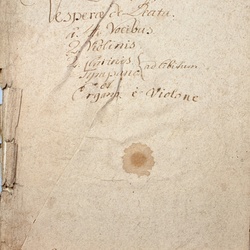 Vesperæ de Beata.
a 4 Vocibus
2 Violinis
2 Clarinis
Tympano
ad libitum
et
Organo è Violone